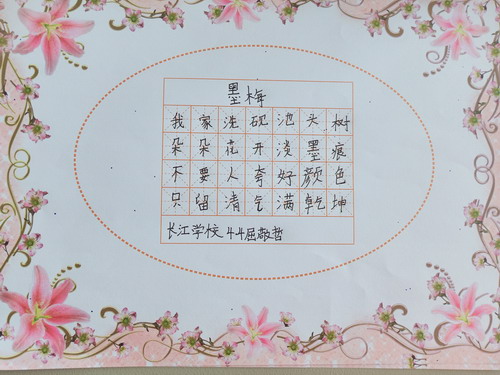 墨梅
我家洗砚池头树
朵朵花开淡墨痕
不要人夸好颜色
只留清气满乾坤
长江学校44屈敬哲